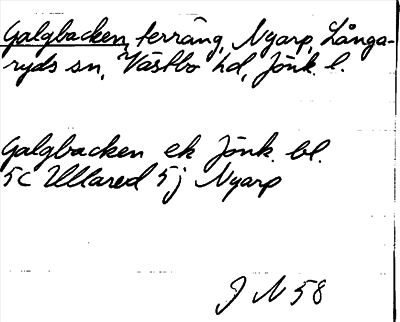 Galgbacken, terräng, Nyarp, Långa-
ryds sn, Västbo hd, Jönk. l.
Galgbacken ek Jönk. bl.
5C Ullared 5j Nyarp
J N 58